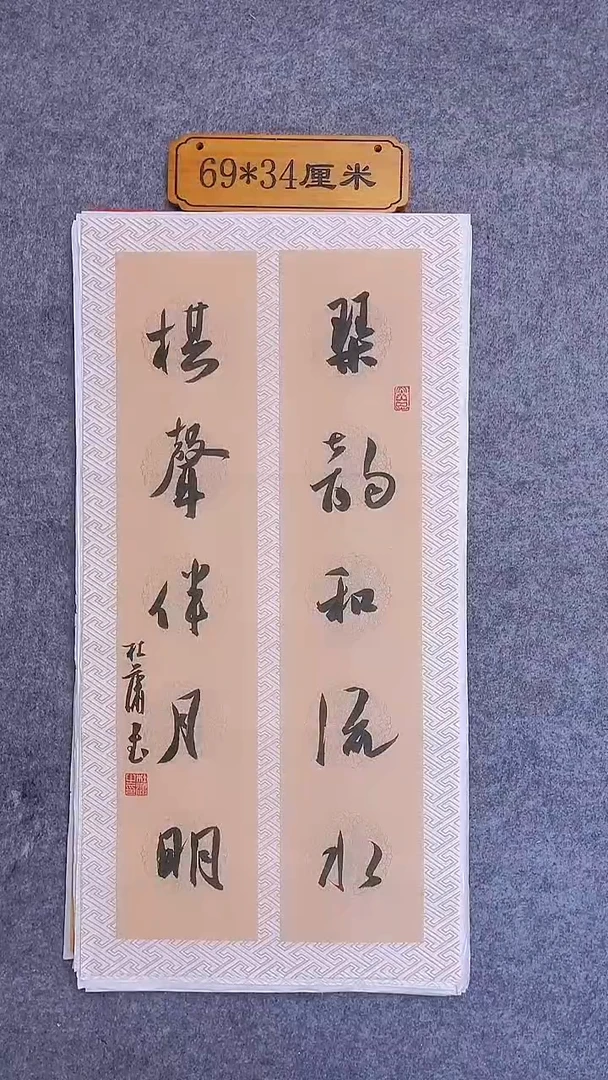 69*34厘米
琴韵和流水
棋聲伴月明
杜蒲書